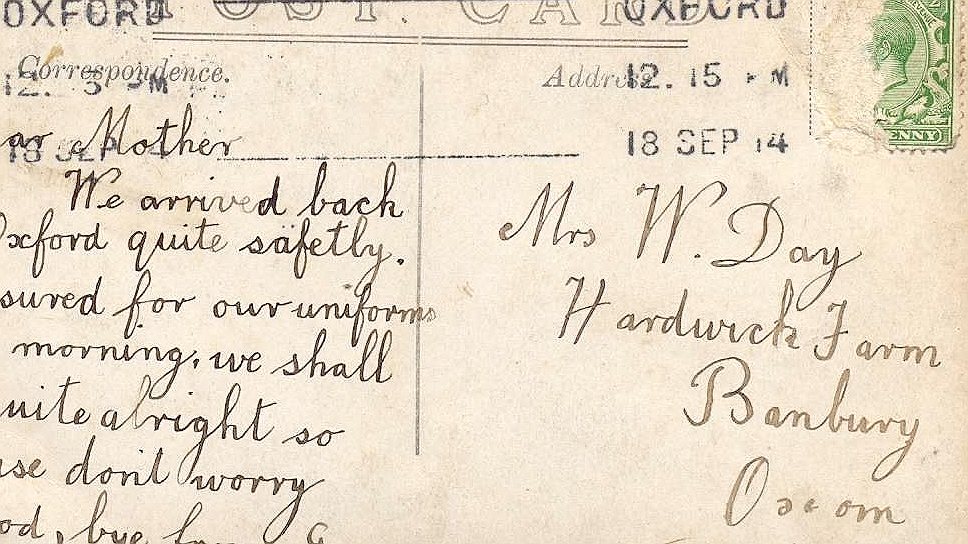 OXFORD
OXFORD
POST CARD
Correspondence.
Address
12. 15 PM
12. 15 PM
18 SEP 14
18 SEP 14
ENNY
ar Mother
We arrived back
Oxford quite säfetly.
sured for our uniforms
morning, we shall
uite alright so
use don't worry
od, bye
Mrs W. Day
Hardwick Farm
Banbury
Oxom